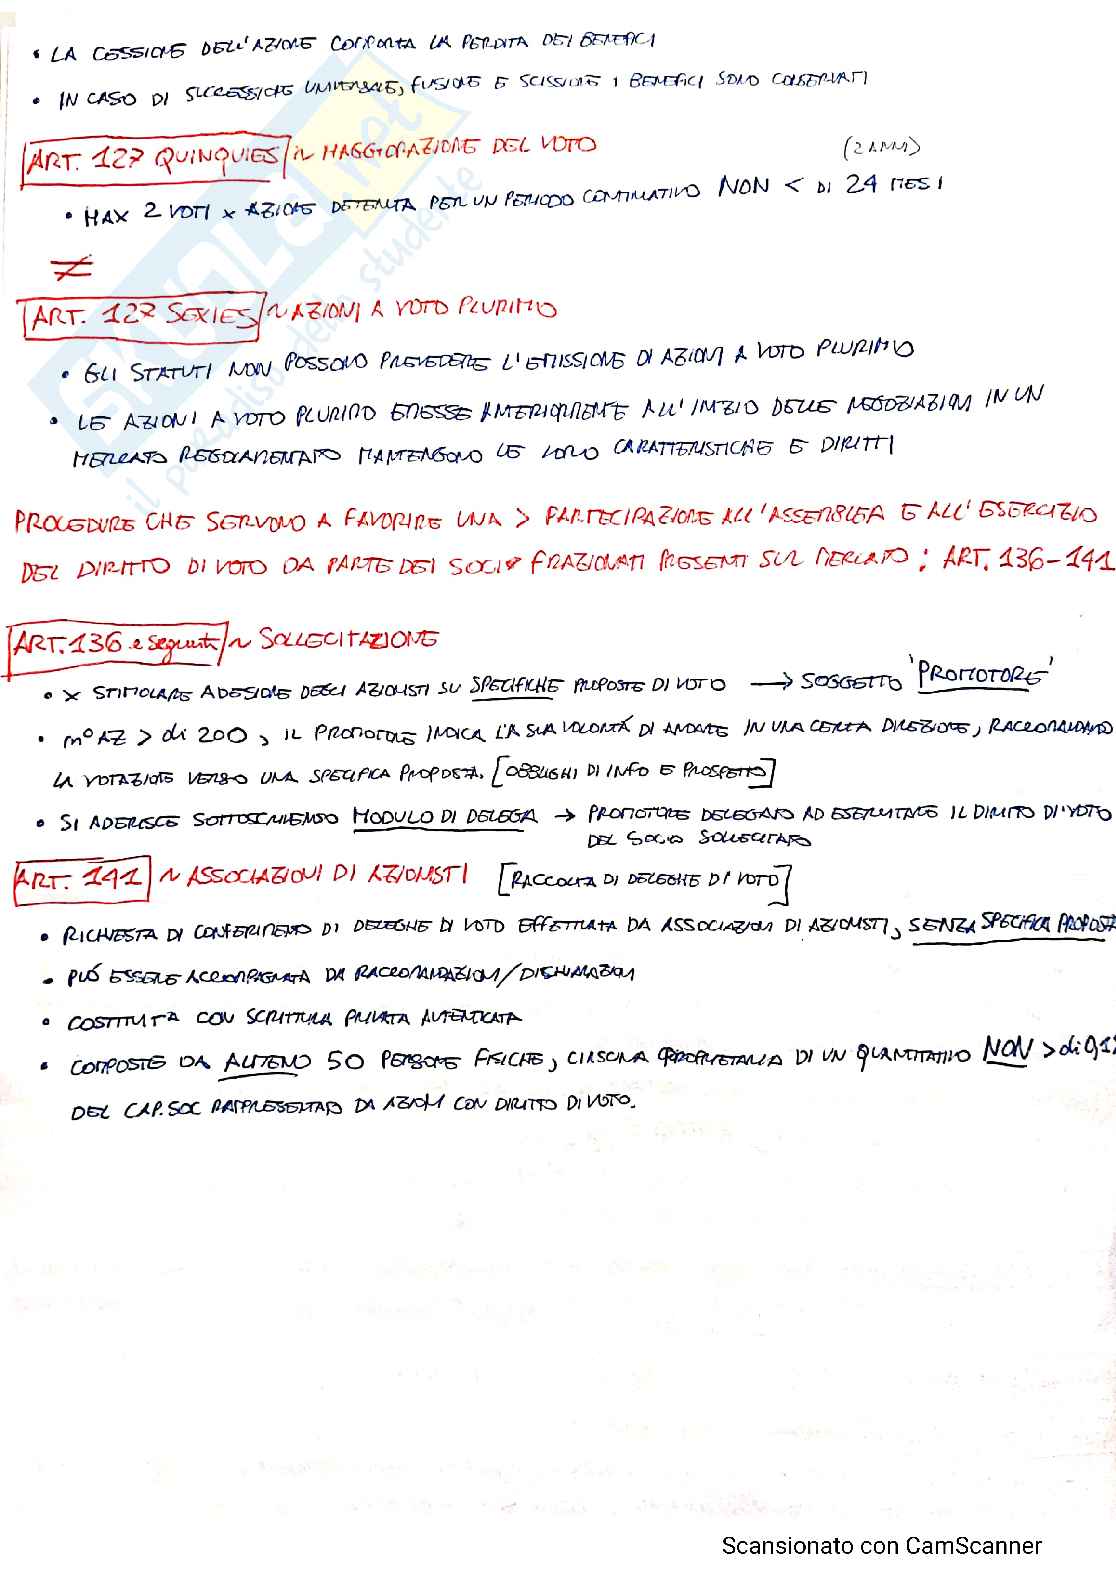 • LA CESSIONE DELL'AZIONE COMPORTA LA PERDITA DEI BENEFICI
• IN CASO DI SUCCESSIONE UNIVERSALE, FUSIONE E SCISSIONE I BENEFICI SONO CONSERVATI
ART. 127 QUINQUIES ~ MAGGIORAZIONE DEL VOTO (2 ANNI)
• MAX 2 VOTI x AZIONE DETENUTA PER UN PERIODO CONTINUATIVO NON < DI 24 MESI
≠
ART. 127 SEXIES ~ AZIONI A VOTO PLURIMO
• GLI STATUTI NON POSSONO PREVEDERE L'EMISSIONE DI AZIONI A VOTO PLURIMO
• LE AZIONI A VOTO PLURIMO EMESSE ANTERIORMENTE ALL'INIZIO DELLE NEGOZIAZIONI IN UN
MERCATO REGOLAMENTATO MANTENGONO LE LORO CARATTERISTICHE E DIRITTI
PROCEDURE CHE SERVONO A FAVORIRE UNA > PARTECIPAZIONE ALL'ASSEMBLEA E ALL'ESERCIZIO
DEL DIRITTO DI VOTO DA PARTE DEI SOCI FRAZIONATI PRESENTI SUL MERCATO: ART. 136-141
ART. 136 e seguenti ~ SOLLECITAZIONE
• x STIMOLARE ADESIONE DEGLI AZIONISTI SU SPECIFICHE PROPOSTE DI VOTO → SOGGETTO 'PROMOTORE'
• n° AZ > di 200, IL PROMOTORE INDICA LA SUA VOLONTÁ DI ANDARE IN UNA CERTA DIREZIONE, RACCOMANDANDO
LA VOTAZIONE VERSO UNA SPECIFICA PROPOSTA. [OBBLIGHI DI INFO E PROSPETTO]
• SI ADERISCE SOTTOSCRIVENDO MODULO DI DELEGA → PROMOTORE DELEGATO AD ESERCITARE IL DIRITTO DI VOTO
DEL SOCIO SOLLECITATO
ART. 141 ~ ASSOCIAZIONI DI AZIONISTI [RACCOLTA DI DELEGHE DI VOTO]
• RICHIESTA DI CONFERIMENTO DI DELEGHE DI VOTO EFFETTUATA DA ASSOCIAZIONI DI AZIONISTI, SENZA SPECIFICA PROPOSTA
• PUÓ ESSERE ACCOMPAGNATA DA RACCOMANDAZIONI/DICHIARAZIONI
• COSTITUITA CON SCRITTURA PRIVATA AUTENTICATA
• COMPOSTE DA ALMENO 50 PERSONE FISICHE, CIASCUNA PROPRIETARIA DI UN QUANTITATIVO NON > di 0,1%
DEL CAP. SOC RAPPRESENTATO DA AZIONI CON DIRITTO DI VOTO.
SKUOLA.net
il paradiso dello studente
Scansionato con CamScanner